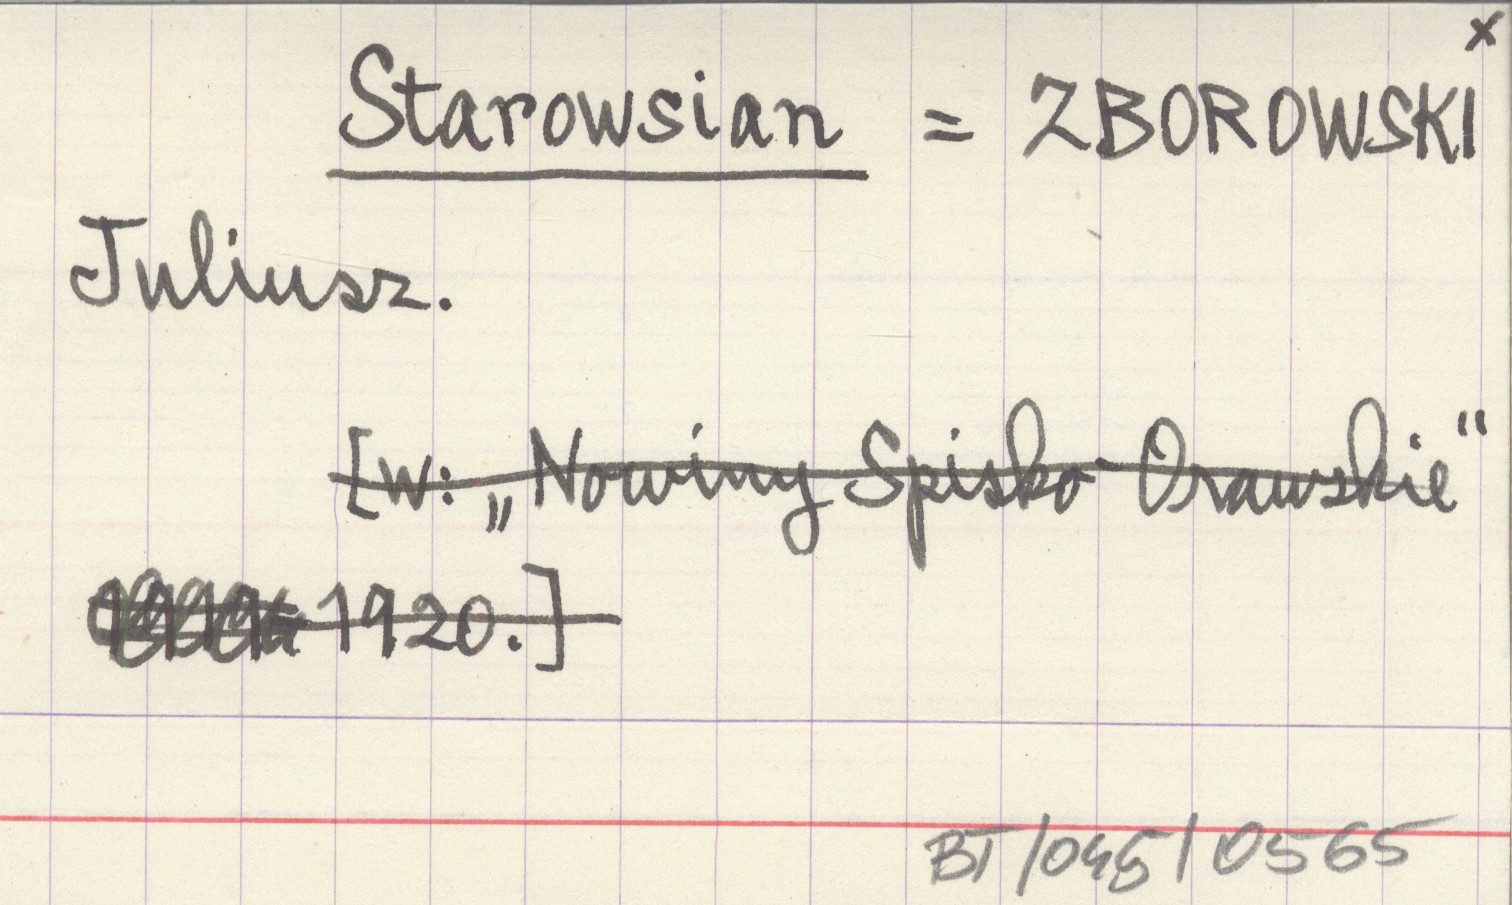 x
Starowsian = ZBOROWSKI
Juliusz.
[w: „Nowiny Spisko-Orawskie"
1920.]
BT/045/0565